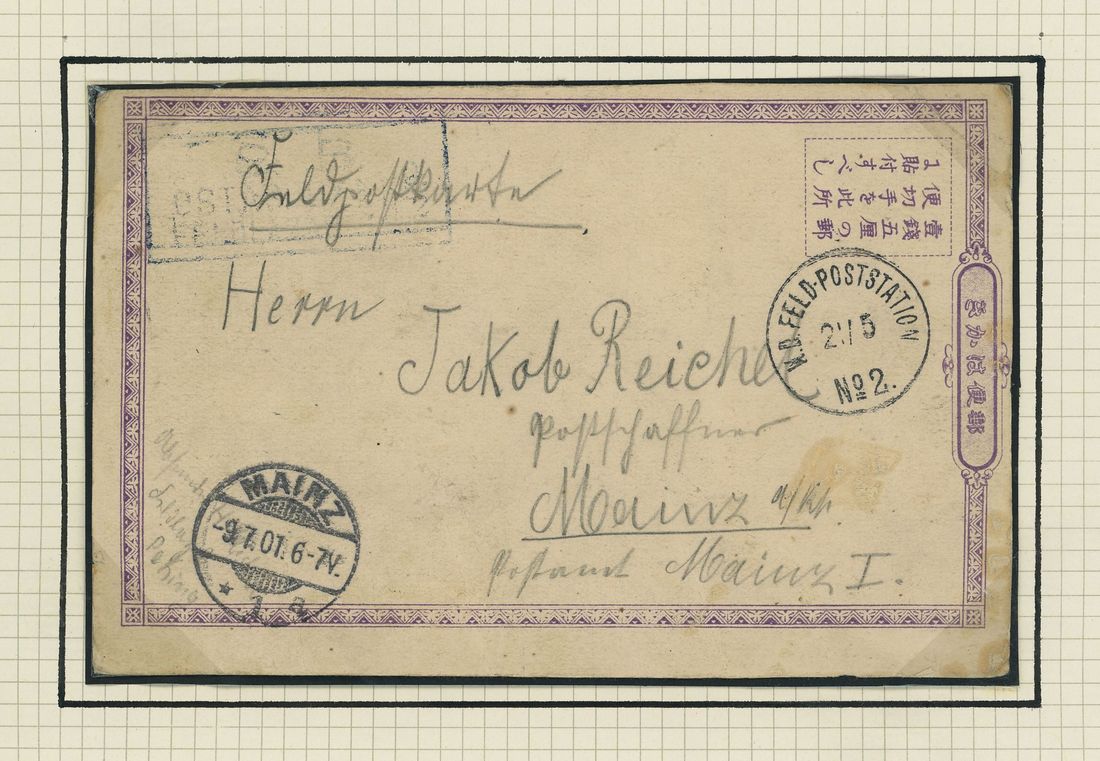 Feldpostkarte
POST
壹錢五厘の郵
便切手を此所
に貼付すべし
Herrn
Jakob Reichel
K.D. FELD-POSTSTATION
No 2.
郵便はかき
Postschaffner
Mainz a/Rh.
Postamt Mainz I.
MAINZ
-9.7.01.6-7N.
* 1 a